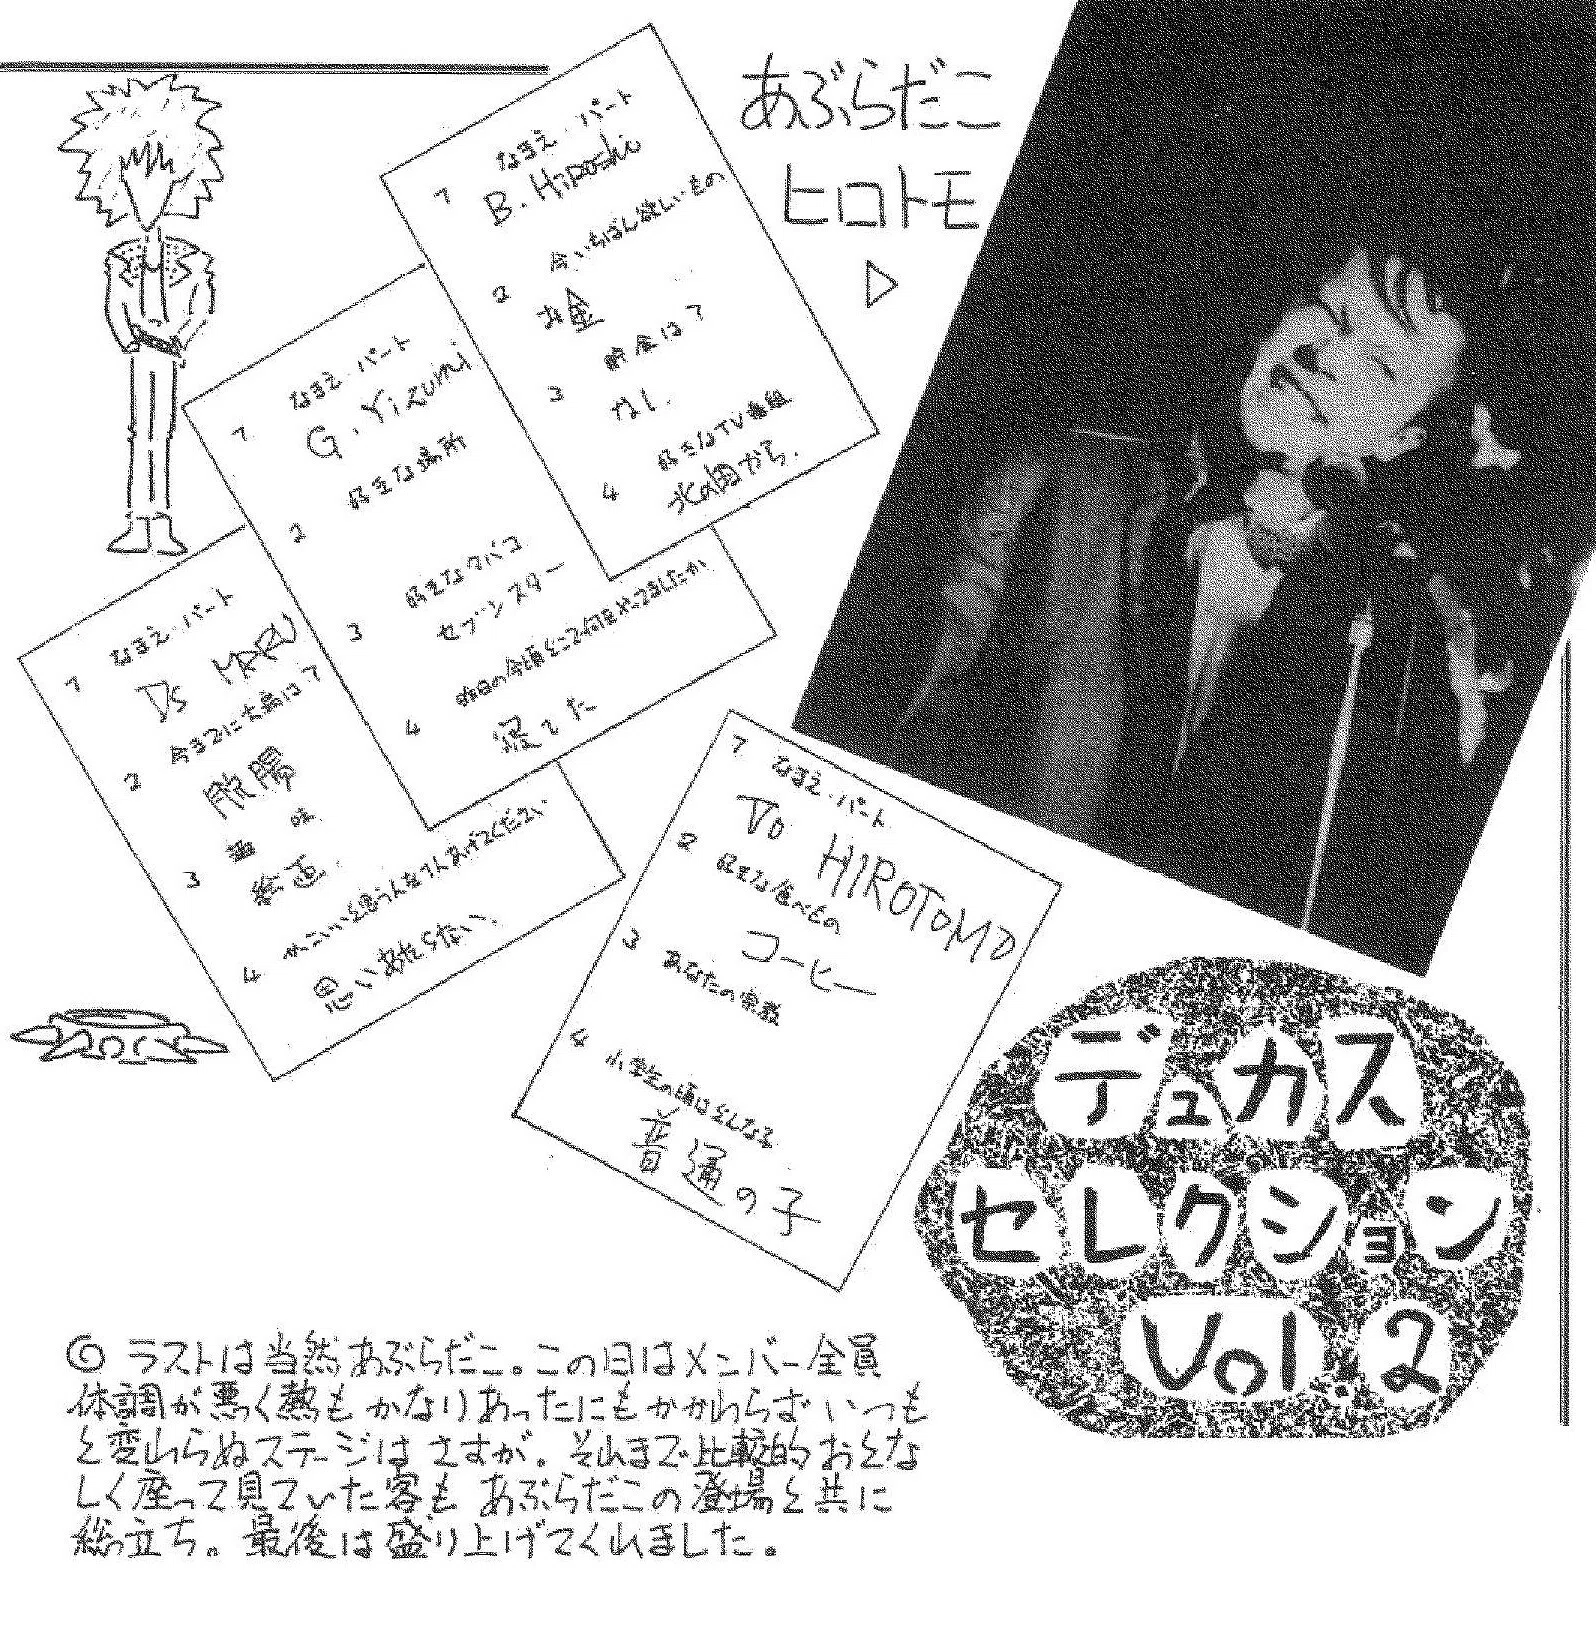 あぶらだこ
ヒロトモ
▷
1 なまえ・パート
B. HiROSHi
2 今いちばん欲しいもの
お金
3 前座は?
なし.
4 好きなTV番組
北の国から.
1 なまえ・パート
G. Yizumi
2 好きな場所
3 好きなタバコ
セブンスター
4 昨日の今頃どこで何をやってましたか
寝てた
1 なまえ・パート
Ds MARU
2 今までに大病は?
脱腸
3 趣味
絵画.
4 かっこいいと思う人を1人あげてください
思いあたらない.
1 なまえ・パート
Vo HIROTOMO
2 好きな食べもの
コーヒー
3 あなたの宗教
4 小学生の頃はどんな子
普通の子
デュカス
セレクション
Vol.2
◎ ラストは当然あぶらだこ。この日はメンバー全員
体調が悪く熱もかなりあったにもかかわらずいつも
と変わらぬステージはさすが。それまで比較的おとな
しく座って見ていた客もあぶらだこの登場と共に
総立ち。最後は盛り上げてくれました。